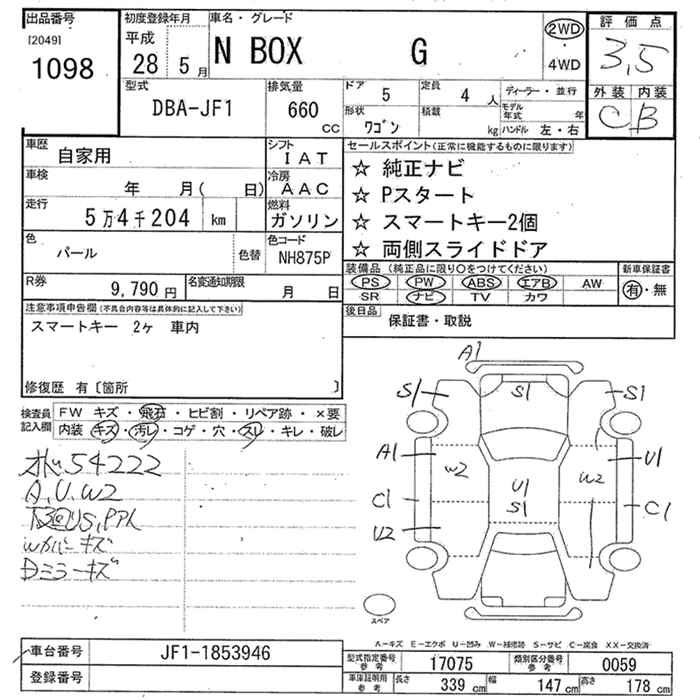 出品番号
[2049]
1098
初度登録年月
平成
28 5 月
車名・グレード
N BOX G
2WD
・
4WD
評価点
3,5
外装 内装
C B
型式
DBA-JF1
排気量
660
cc
ドア
5
定員
4 人
形状
ワゴン
積載
kg
ディーラー・並行
モデル年式 年
ハンドル 左・右
車歴
自家用
シフト
IAT
車検
年 月( 日)
冷房
AAC
走行
5万4千204 km
燃料
ガソリン
色
パール
色替
色コード
NH875P
R券
9,790 円
名変通知期限
月 日
セールスポイント(正常に機能するものに限ります)
☆ 純正ナビ
☆ Pスタート
☆ スマートキー2個
☆ 両側スライドドア
装備品 (純正品に限り○をつけてください)
新車保証書
PS PW ABS エアB AW
SR ナビ TV カワ
有・無
後日品
保証書・取説
注意事項申告欄(不具合内容等は具体的に記入して下さい)
スマートキー 2ヶ 車内
修復歴 有〔箇所 〕
検査員記入欄
FW キズ・飛石・ヒビ割・リペア跡・×要
内装 キズ・汚レ・コゲ・穴・スレ・キレ・破レ
54222
A,U,W2
Wカバーキズ
Dミラーキズ
A1
S1
S1
S1
A1
W2
U1
S1
W2
U1
C1
C1
U2
スペア
A―キズ E―エクボ U―凹み W―補修跡 S―サビ C―腐食 XX―交換済
車台番号
JF1-1853946
登録番号
型式指定番号
参考
17075
類別区分番号
参考
0059
車庫証明用
参考
長さ
339 cm
幅
147 cm
高さ
178 cm